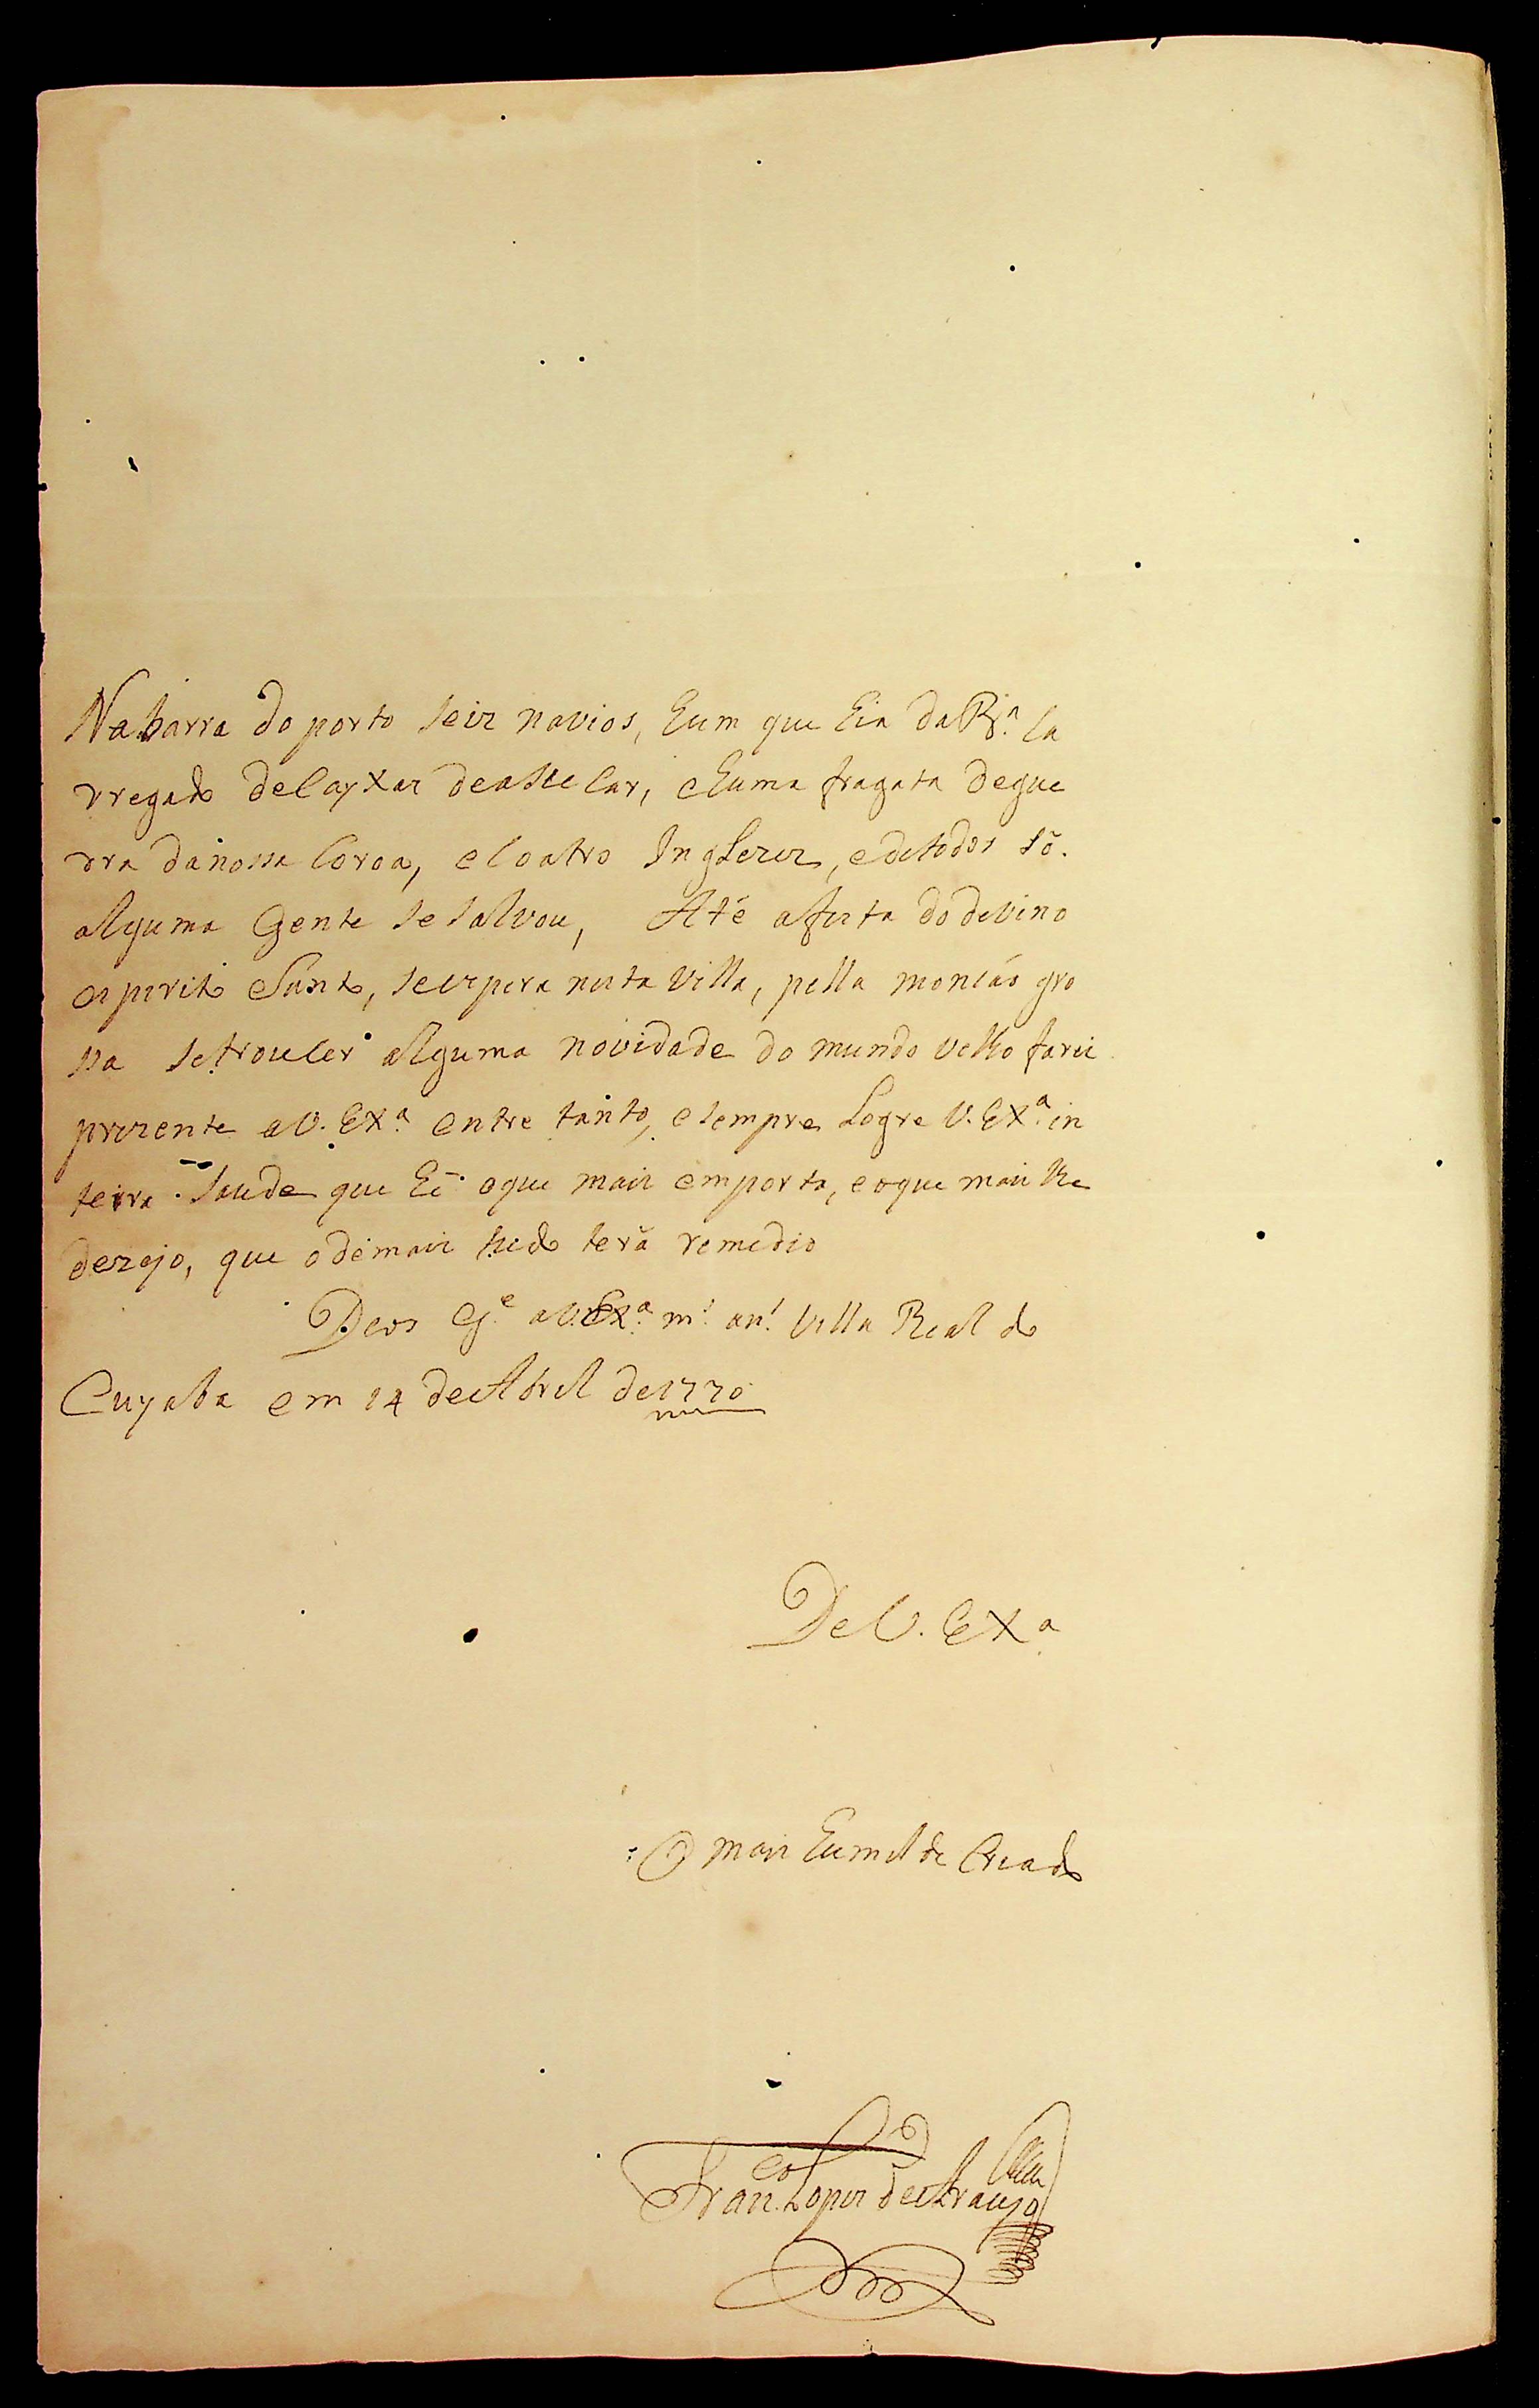 Nabarra do porto seis navios, hum que hia da Bª. Ca
rregado deCayxas deasucar, ehuma fragata degue
rra danossa Coroa, eCoatro Inglezes, edetodos só.
alguma Gente sesalvou, Até afesta do devino
espirito Santo, sespera nesta Villa, pella monsáo gro
ssa setroucer alguma novidade do mundo velho farei
prezente aV. Exª. entre tanto, esempre Logre V. Exª. in
teira saude que hé oque mais emporta, eoque mais lhe
dezejo, que odemais tudo terá remedio
Deos Gᵉ. aV. Exª. mˢ. anˢ. Villa Real do
Cuyaba em 14 deAbril de1770
DeV. Exª
O mais humilde Criado
Franᶜᵒ. Lopes deAraujo